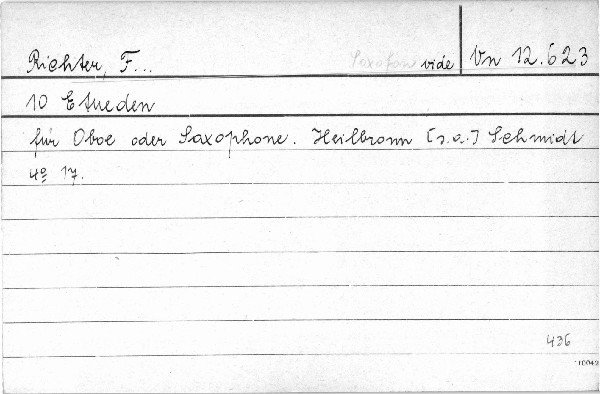 Richter, F... Saxofon vide Vn 12.623
10 Etueden
für Oboe oder Saxophone. Heilbronn [s.a.] Schmidt
4º 17.
436
110042